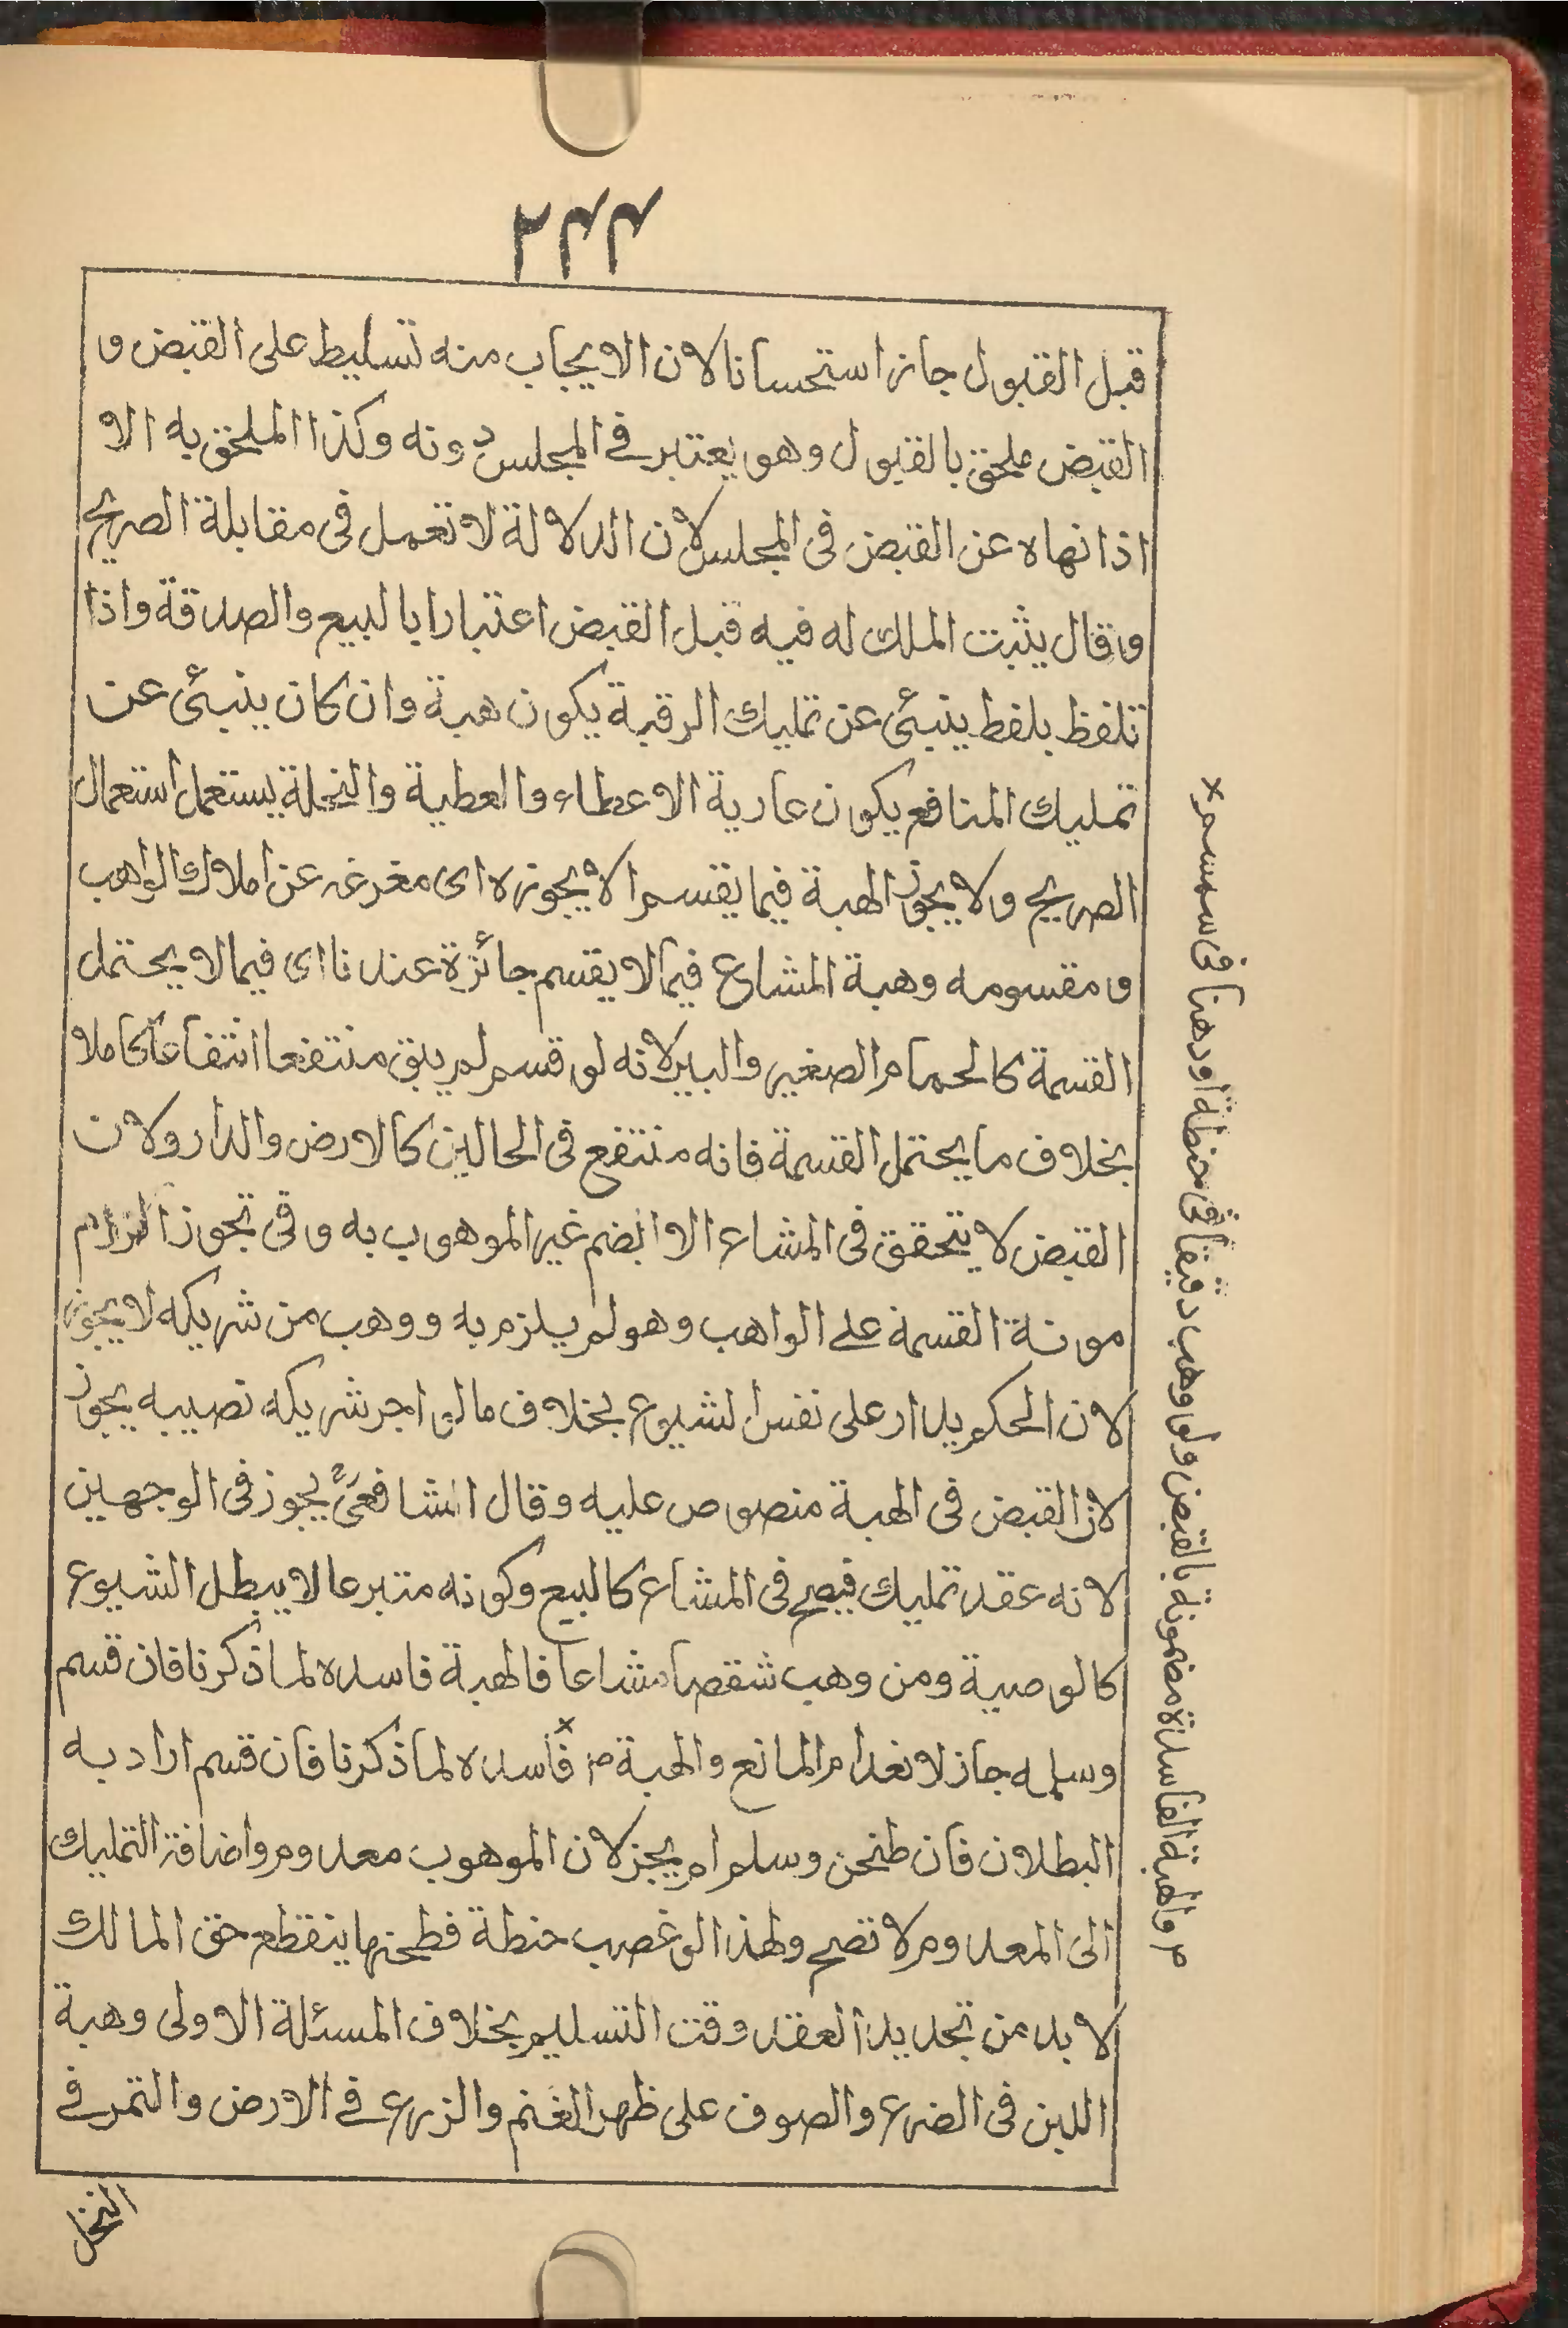 ۲۴۴
قبل القبول جاز استحسانا لان الايجاب منه تسليط على القبض و
القبض ملحق بالقبول وهو يعتبر فى المجلس دونه وكذا الملحق به الا
اذا نهاه عن القبض فى المجلس لان الدلالة لا تعمل فى مقابلة الصريح
وقال يثبت الملك له فيه قبل القبض اعتبارا بالبيع والصدقة واذا
تلفظ بلفظ ينبئ عن تمليك الرقبة يكون هبة وان كان ينبئ عن
تمليك المنافع يكون عارية الاعطاء والعطية والنحلة يستعمل استعمال
الصريح ولا يجوز الهبة فيما يقسم الا يجوزه اى مغرغه عن املاك الواهب
ومقسومه وهبة المشاع فيما لا يقسم جائزة عندنا اى فيما لا يحتمل
القسمة كالحمام الصغير والبير لانه لو قسم لم يبق منتفعا انتفاعا كاملا
بخلاف ما يحتمل القسمة فانه منتفع فى الحالين كالارض والدار ولان
القبض لا يتحقق فى المشاع الا بضم غير الموهوب به وفى تجوز الزام
مونة القسمة على الواهب وهو لم يلزم به ووهب من شريكه لا يجوز
لان الحكم يدار على نفس الشيوع بخلاف ما لو اجر شريكه نصيبه يجوز
لان القبض فى الهبة منصوص عليه وقال الشافعىؒ يجوز فى الوجهين
لانه عقد تمليك فيصح فى المشاع كالبيع وكونه متبرعا لا يبطل الشيوع
كالوصية ومن وهب شقصا مشاعا فالهبة فاسده لما ذكرنا فان قسم
وسلمه جاز لانعدام المانع والهبة ۳ فاسده لما ذكرنا فان قسم اراد به
البطلان فان طحن وسلم لم يجز لان الموهوب معدوم واضافة التمليك
الى المعدوم لا تصح ولهذا لو غصب حنطة فطحنها ينقطع حق المالك
لا بد من تجديد العقد وقت التسليم بخلاف المسئلة الاولى وهبة
اللبن فى الضرع والصوف على ظهر الغنم والزرع فى الارض والتمر فى
النخل
۳ والهبة الفاسدة مضمونة بالقبض ولو وهب دقيقا فى حنطة او دهنا فى سمسم ×